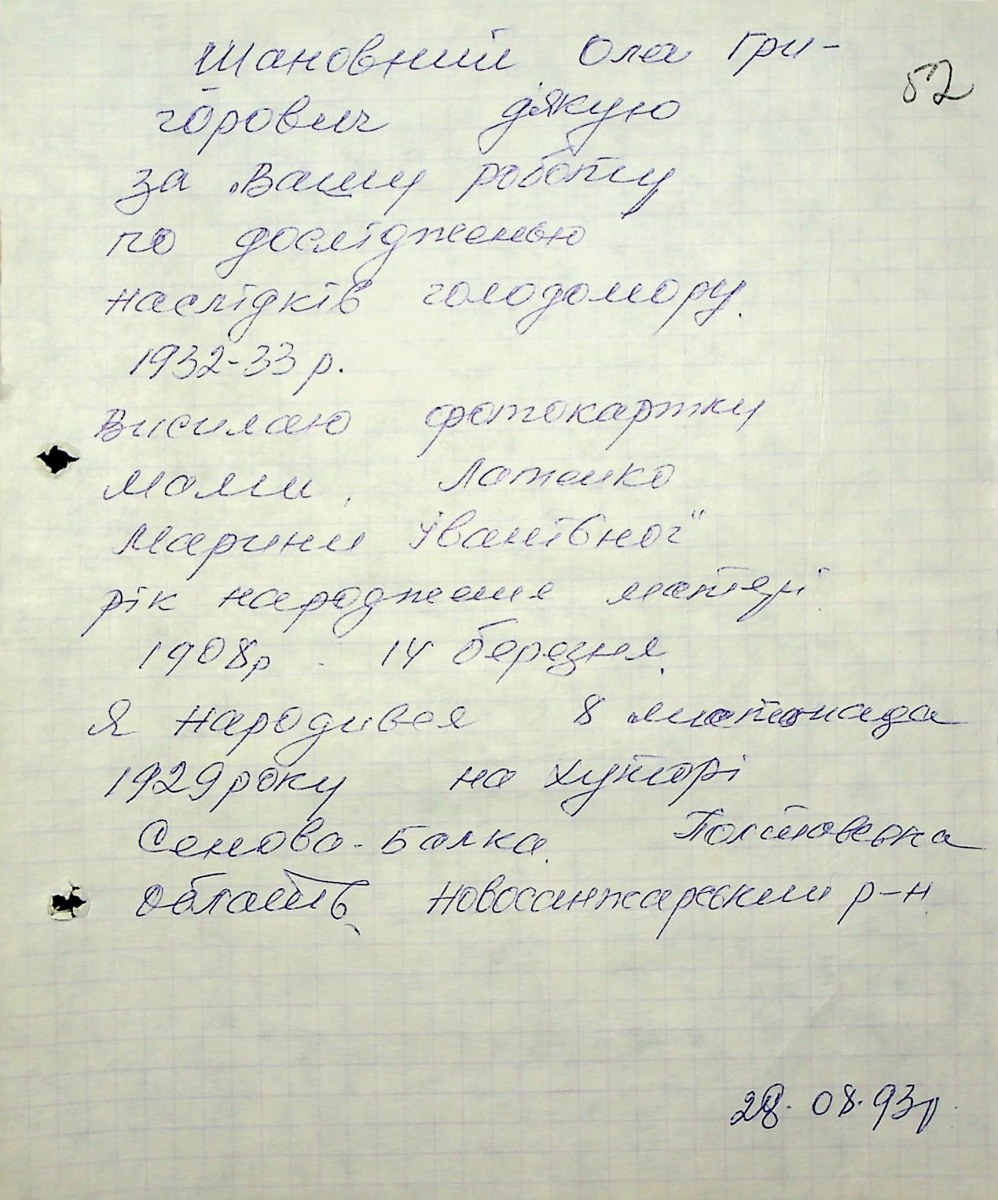 Шановний Олег Гри-
горович дякую
52
за Вашу роботу
по дослідженью
наслідків голодомору.
1932-33 р.
Висилаю фотокартку
мами,
Марини Іванівної
рік народження матері.
1908р 14 березня.
Я народився 8 листопада
1929 року на хуторі
Сенова-Балка Полтавська
область, Новосанжарський р-н
28.08.93р.